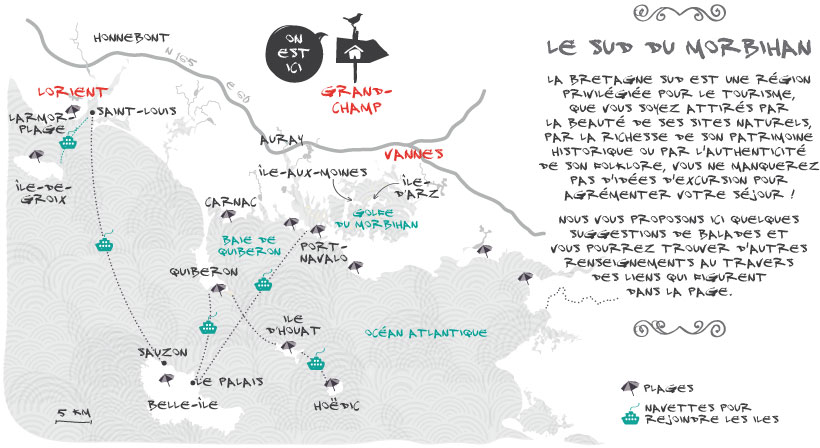 HONNEBONT
N 165
E 60
ON
EST
ICI
GRAND-
CHAMP
LORIENT
LARMOR-
PLAGE
SAINT-LOUIS
ÎLE-DE-
GROIX
AURAY
VANNES
ÎLE-AUX-MOINES
ÎLE-
D'ARZ
CARNAC
GOLFE
DU MORBIHAN
BAIE DE
QUIBERON
PORT-
NAVALO
QUIBERON
ILE
D'HOUAT
OCÉAN ATLANTIQUE
SAUZON
LE PALAIS
BELLE-ÎLE
HOËDIC
5 KM
LE SUD DU MORBIHAN
LA BRETAGNE SUD EST UNE RÉGION
PRIVILÉGIÉE POUR LE TOURISME,
QUE VOUS SOYEZ ATTIRÉS PAR
LA BEAUTÉ DE SES SITES NATURELS,
PAR LA RICHESSE DE SON PATRIMOINE
HISTORIQUE OU PAR L'AUTHENTICITÉ
DE SON FOLKLORE, VOUS NE MANQUEREZ
PAS D'IDÉES D'EXCURSION POUR
AGRÉMENTER VOTRE SÉJOUR !
NOUS VOUS PROPOSONS ICI QUELQUES
SUGGESTIONS DE BALADES ET
VOUS POURREZ TROUVER D'AUTRES
RENSEIGNEMENTS AU TRAVERS
DES LIENS QUI FIGURENT
DANS LA PAGE.
PLAGES
NAVETTES POUR
REJOINDRE LES ILES